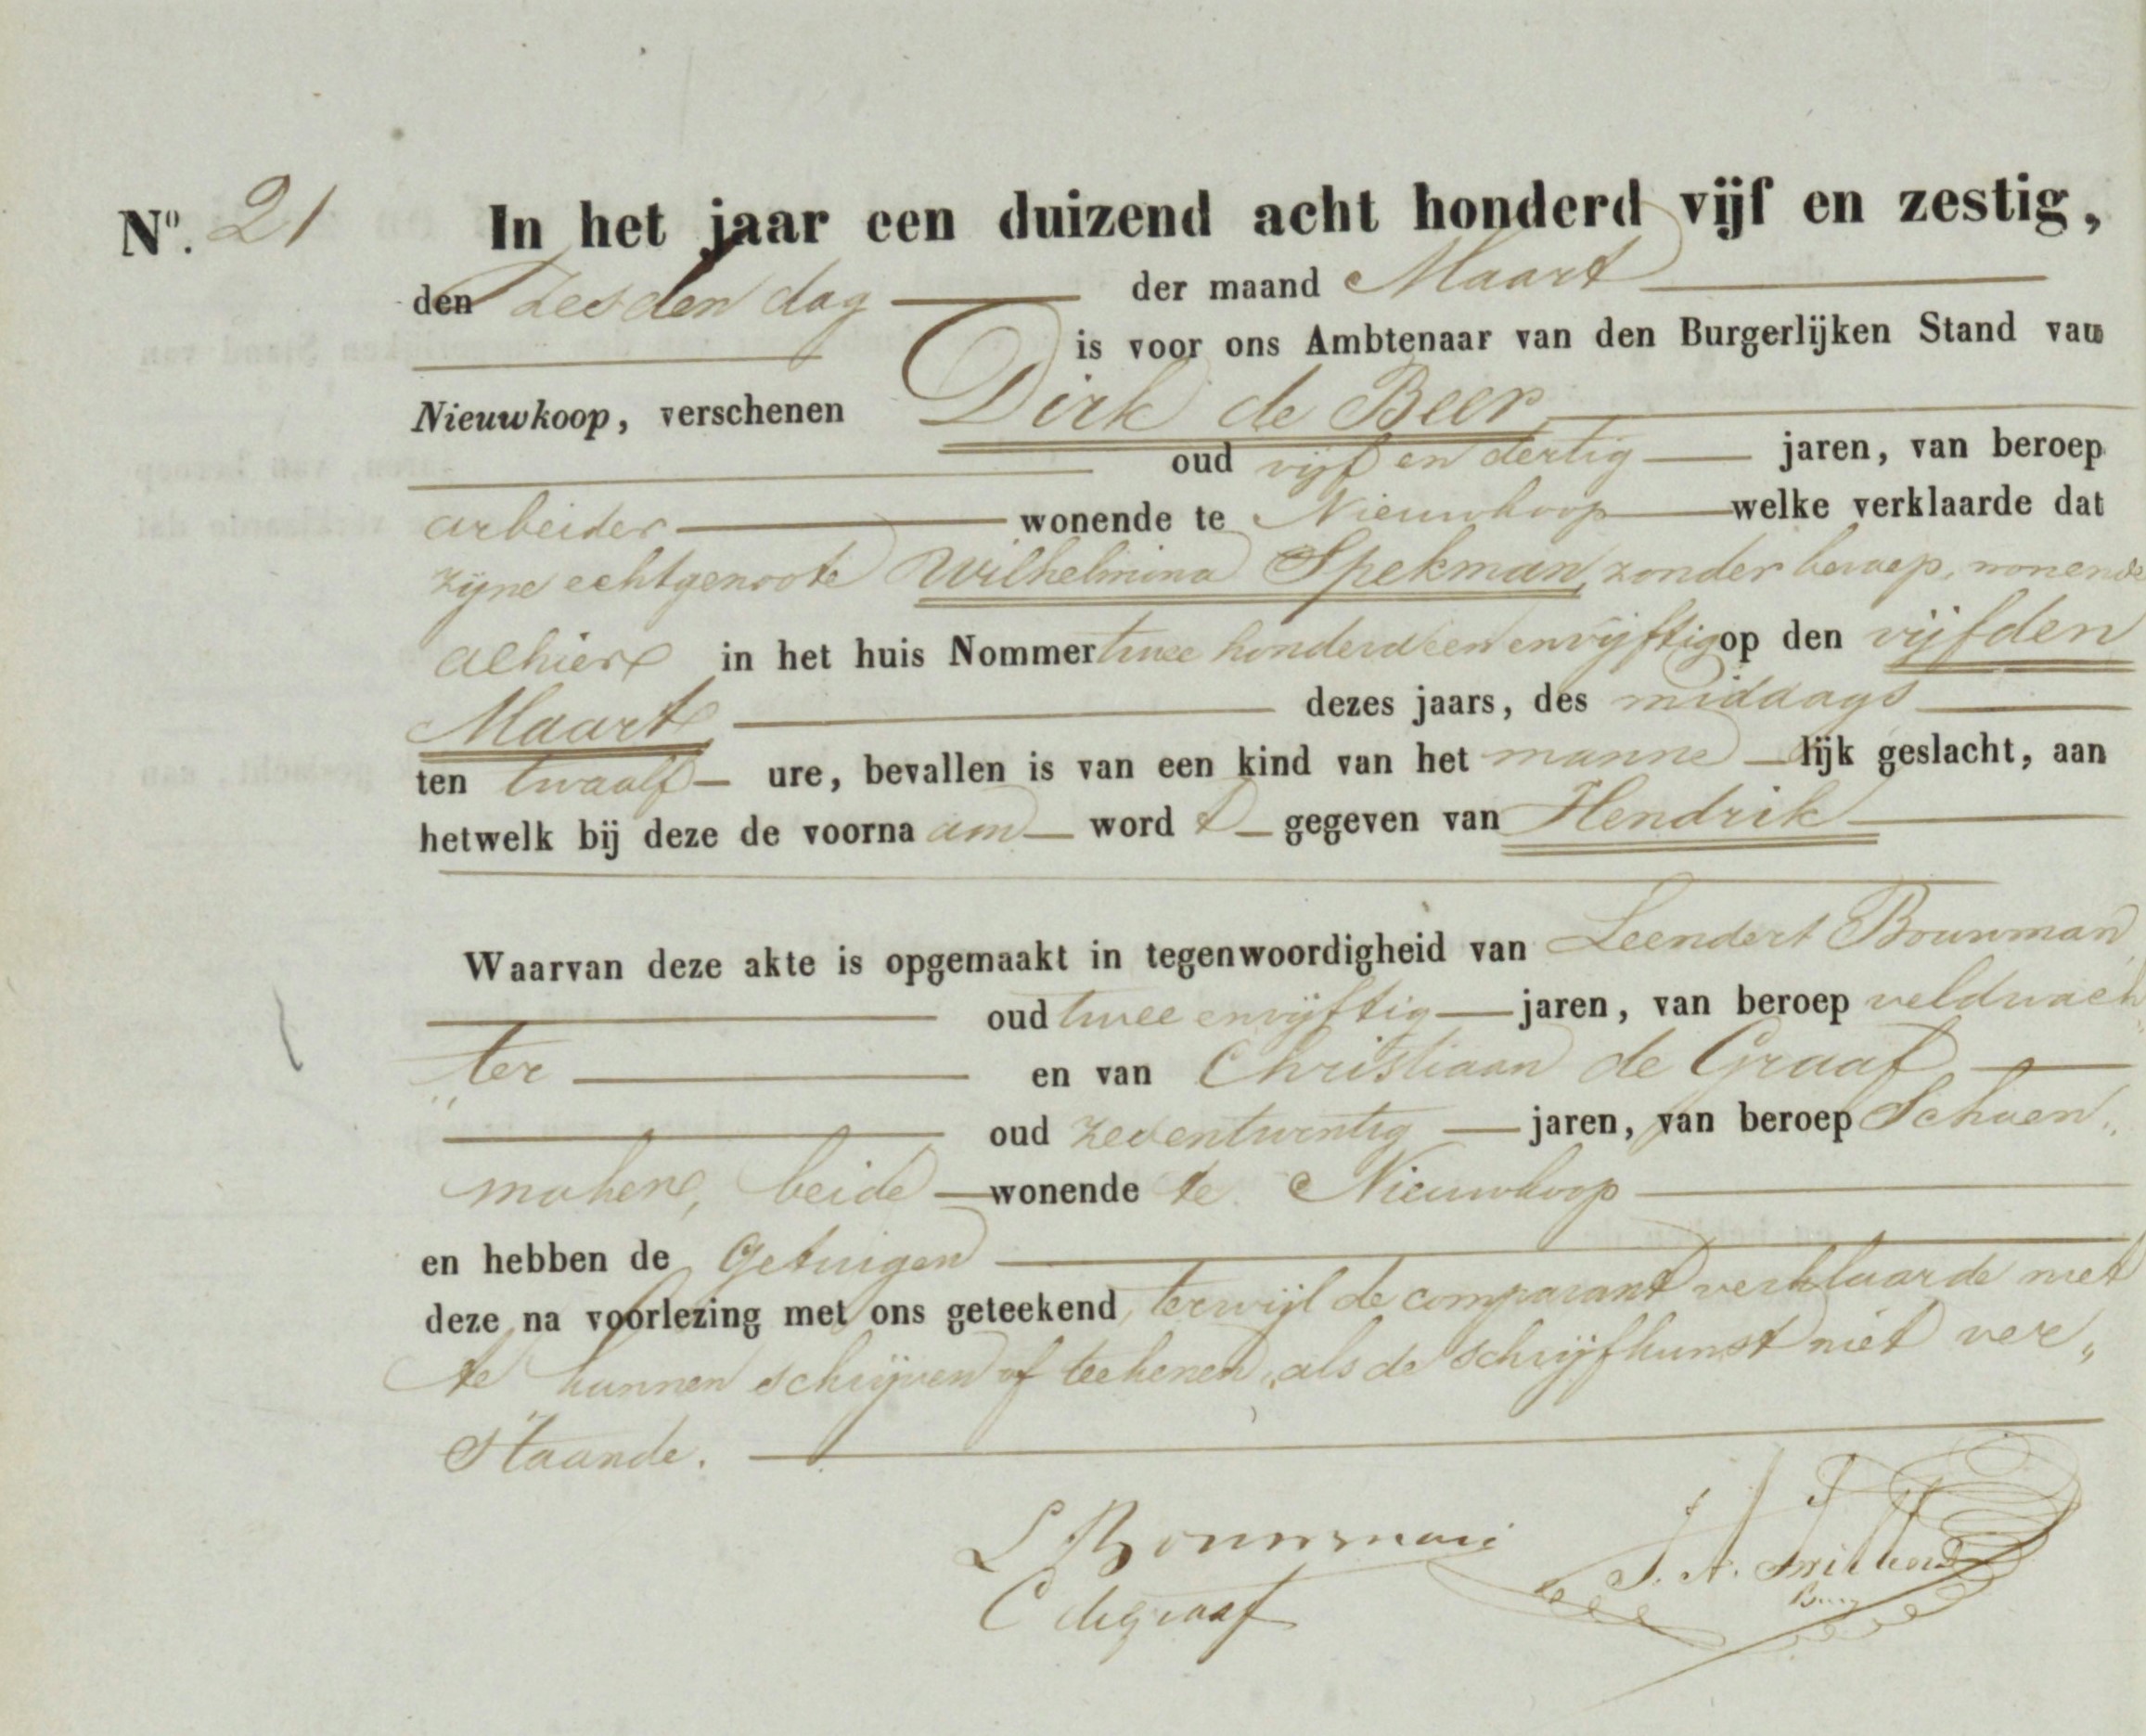 No. 21 In het jaar een duizend acht honderd vijf en zestig,
den Zesden dag der maand Maart
is voor ons Ambtenaar van den Burgerlijken Stand van
Nieuwkoop, verschenen Dirk de Beer
oud vijf en dertig jaren, van beroep
arbeider wonende te Nieuwkoop welke verklaarde dat
zijne echtgenoote Wilhelmina Spekman, zonder beroep, wonende
alhier in het huis Nommer twee honderd een en vijftig op den vijfden
Maart dezes jaars, des middags
ten twaalf ure, bevallen is van een kind van het manne lijk geslacht, aan
hetwelk bij deze de voorna am word t gegeven van Hendrik
Waarvan deze akte is opgemaakt in tegenwoordigheid van Leendert Bouwman,
oud twee en vijftig jaren, van beroep veldwach„
„ter en van Christiaan de Graaf
oud zeventwintig jaren, van beroep Schoen„
maker, beide wonende te Nieuwkoop
en hebben de Getuigen
deze na voorlezing met ons geteekend, terwijl de comparant verklaarde niet
te kunnen schrijven of teekenen, als de schrijfkunst niet ver„
staande.
L Bouwman
C degraaf
J. A.
Burg